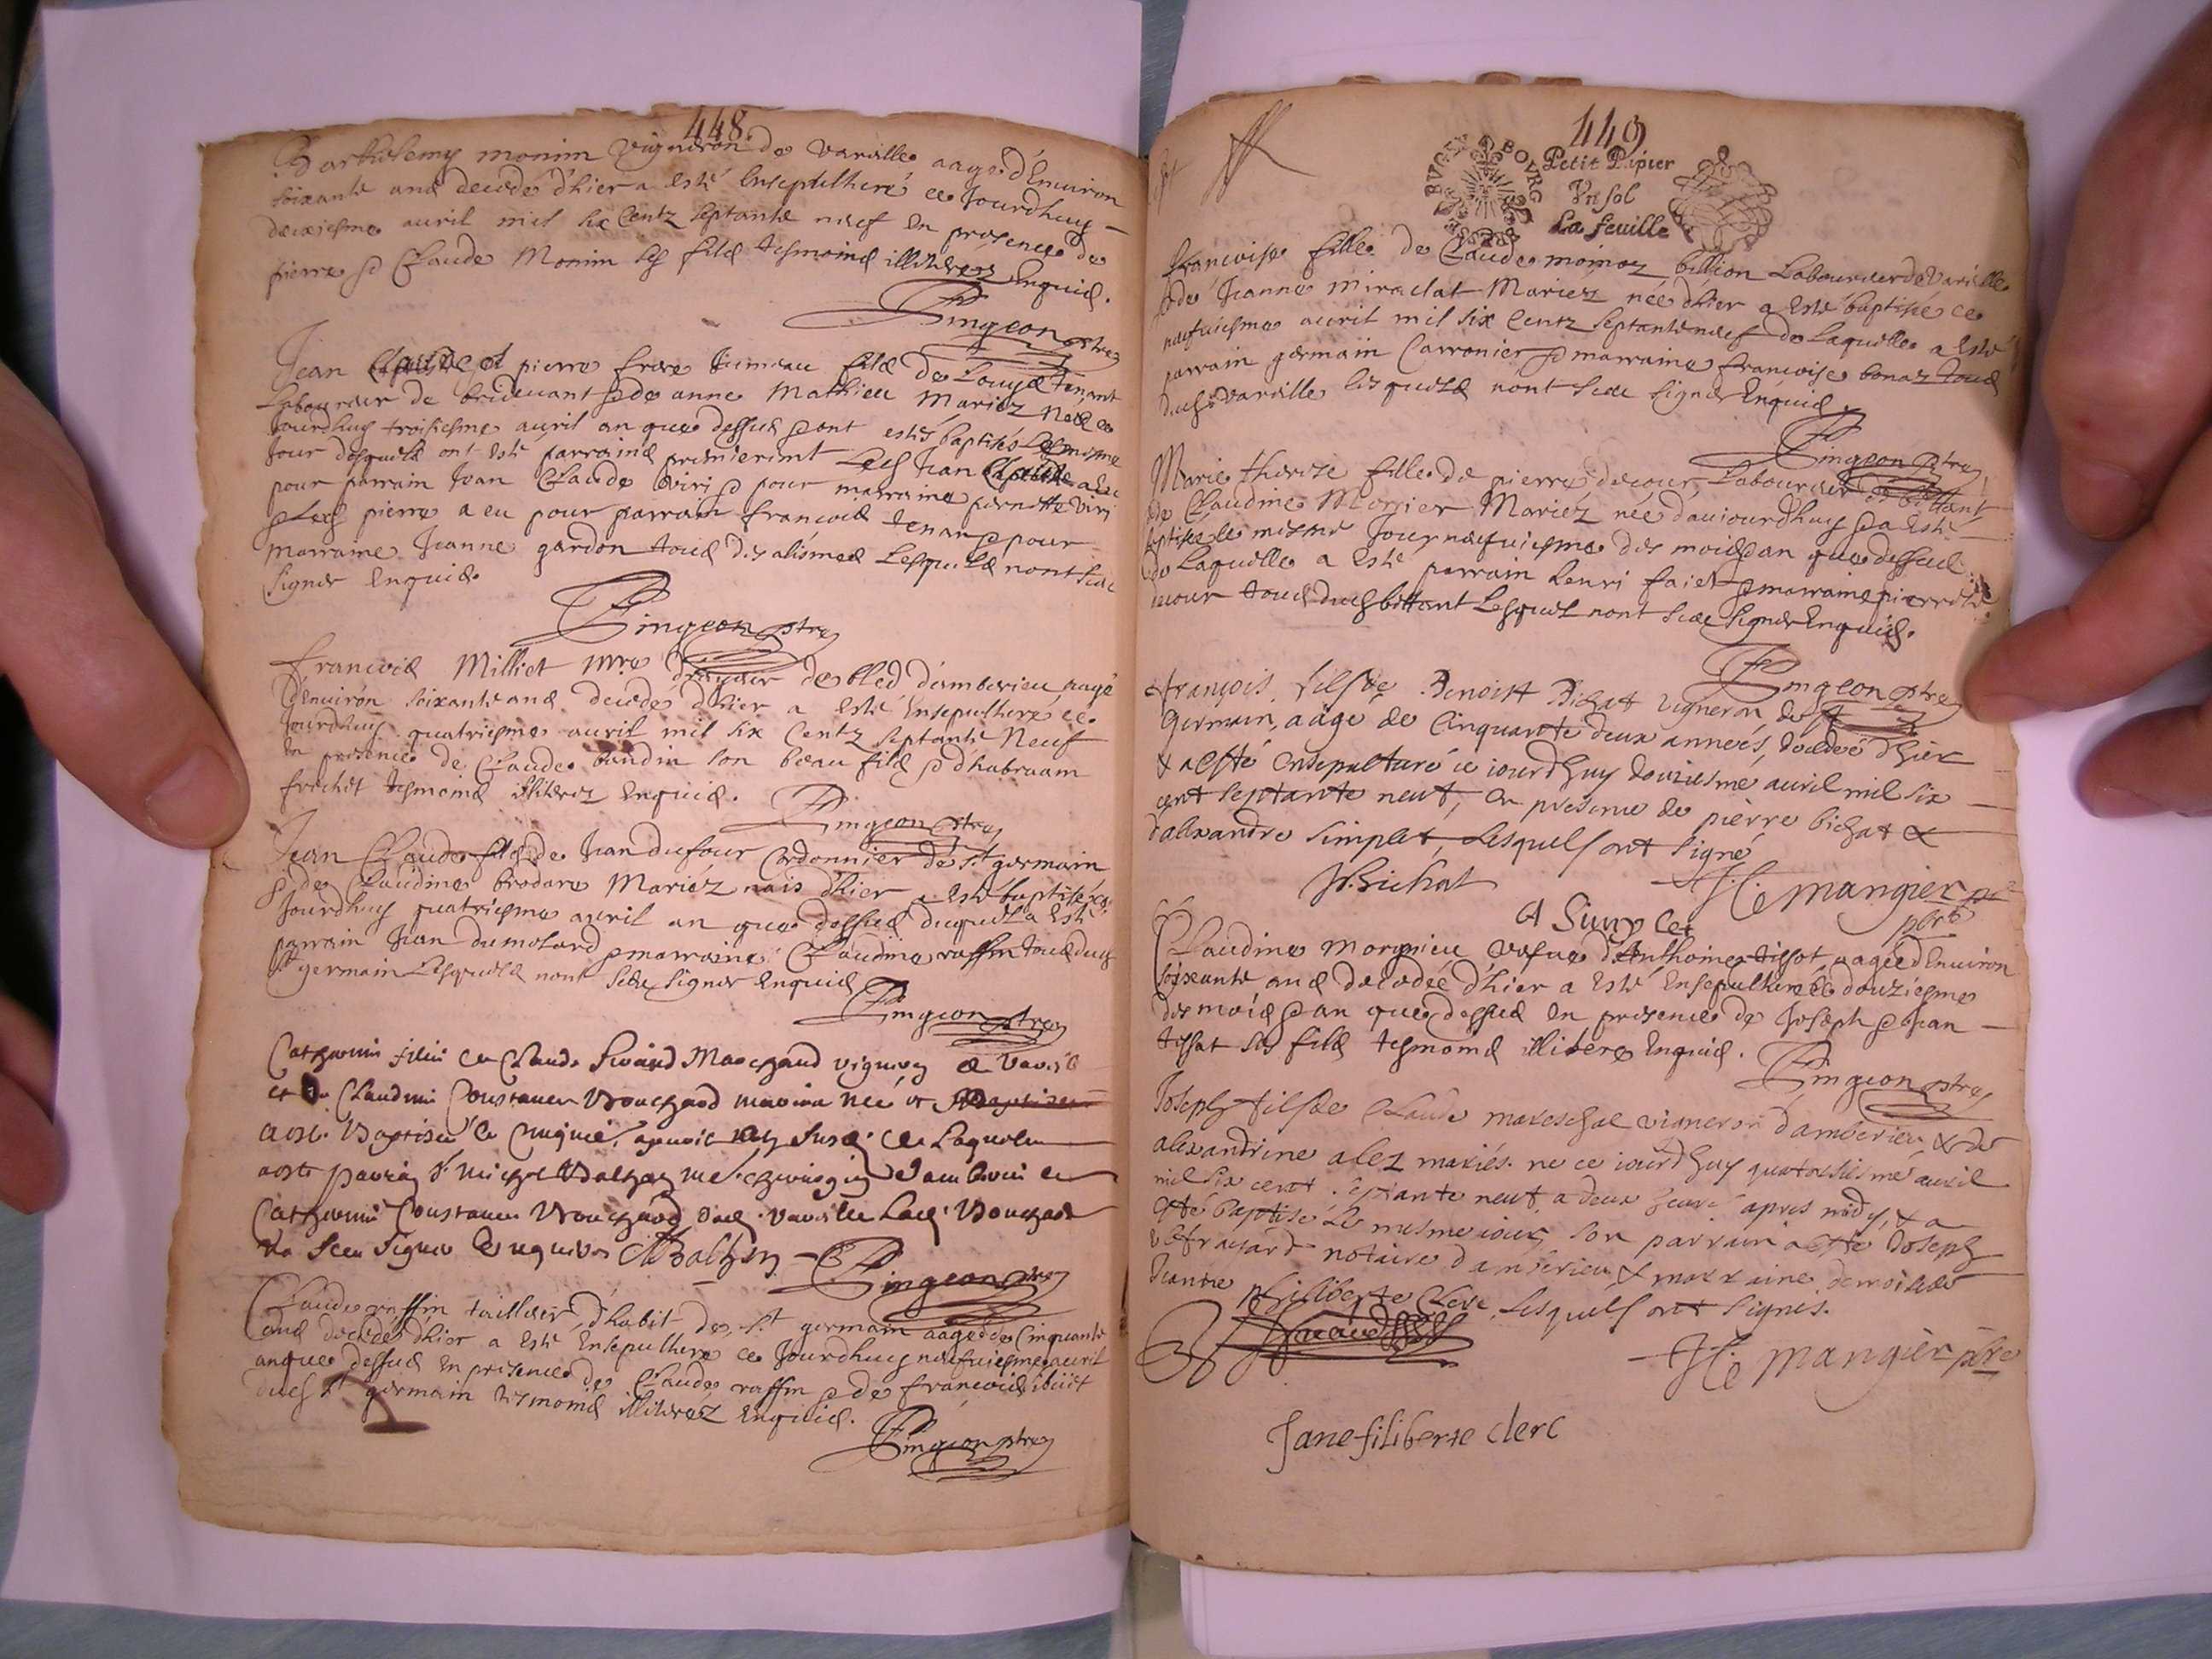 448
Barthelemy monim vigneron de Vareille aagé d'Environ
soixante ans decedé d'hier a esté Ensepulthuré ce Jourdhuy
deuxiesme auril mil six Centz septante neuf En presence de
pierre & Claude Monim ses filz tesmoins illiterez Enquis.
Pingeon ptre
Jean et pierre frere Jumeau filz de Louys tenant
Laboureur de bridevant & de anne Mathieu Mariez Nez ce
Jourdhuy troisiesme auril an que dessus & ont estés baptisés Le mesme
Jour desquelz ont esté parrains premierement Led Jean a eu
pour parrain Jean Claude Viri & pour marraine pernette Viri
& Led pierre a eu pour parrain francois tenant & pour
marraine Jeanne gardon tous des alismes Lesquelz nont sceu
signer Enquis
Pingeon ptre
francois Milliet mre de bled d'amberieu aagé
d'Enuiron soixante ans decedé d'hier a esté Ensepulthuré ce
Jourdhuy quatriesme auril mil six Centz septante Neuf
En presence de Claude baudin son beau filz & d'habraam
frechet tesmoins illiterez Enquis.
Pingeon ptre
Jean Claude filz de Jean dufour Cordonnier de St germain
& de Claudine brodare Mariéz nais d'hier a esté baptisé ce
Jourdhuy quatriesme auril an que dessus duquel a esté
parrain Jean dumolard & marraine Claudine raffin tous dud
St germain Lesquelz nont sceu signer Enquis
Pingeon ptre
Catherine fille de Claude Marchand vigneron de Vareille
et de Claudine Constance Bouchard mariez née
a esté Baptisée le de Laquelle
a esté parrain Sr Michel Balthazy Me chirurgien d'amberieu et
Catherine Constance Bouchard dud. Vareille Lad. Bouchard
na sceu signer Enquise MBalthazy
Pingeon ptre
Claude raffin tailleur d'habit de St germain aagé de Cinquante
ans decedé d'hier a esté Ensepulthuré ce Jourdhuy neufuiesme auril
an que dessus En presence de Claude raffin & de francois
dud St germain tesmoins illiteréz Enquis.
Pingeon ptre
449
BOVRG
Petit Papier
Vn sol
La feuille
francoise fille de Claude moinoz billion Laboureur de Vareille
& de Jeanne miraclat Mariez née d'hier a esté baptisée ce
neufuiesme auril mil six Centz septante neuf de Laquelle a esté
parrain germain Carronier & marraine francoise bonaz tous
dud Vareille lesquelz nont sceu signer Enquis
Pingeon ptre
Marie therese fille de pierre decour, Laboureur de bettant
& de Claudine Monier Mariéz née d'aujourdhuy & a esté
baptisée le mesme Jour neufuiesme des mois & an que dessus
de Laquelle a esté parrain henri faict & marraine pierrette
decour tous dud bettant Lesquelz nont sceu signer Enquis.
Pingeon ptre
françois filz de Benoist Bichat vigneron de St
Germain, aagé de Cinquante deux années, decedé d'hier
& a esté ensepulturé ce iourdhuy douziesme auril mil six
cent septante neuf, en presence de pierre bichat &
d'alexandre simplet, Lesquels ont signé
P. Bichat
H Ce mangier
ptre
A Sinplet
Claudine Morgnieu Vefue d'Anthoine tissot aagée d'Enuiron
soixante ans decedée d'hier a esté Ensepulthurée ce douziesme
des mois & an que dessus En presence de Joseph & Jean
tissot ses filz tesmoins illiterez Enquis.
Pingeon ptre
Joseph fils de Claude mareschal vigneron d'amberieu & de
alexandrine alez mariés. ne ce iourdhuy quatorsiesme auril
mil six cent septante neuf, a deux heure apres midy, & a
esté baptisé le mesme iour, son parrain a esté Joseph
notaire d'amberieu & marraine demoiselle
Jeanne philiberte Clerc, Lesquels ont signés.
H Ce mangier ptre
Jane filiberte clerc